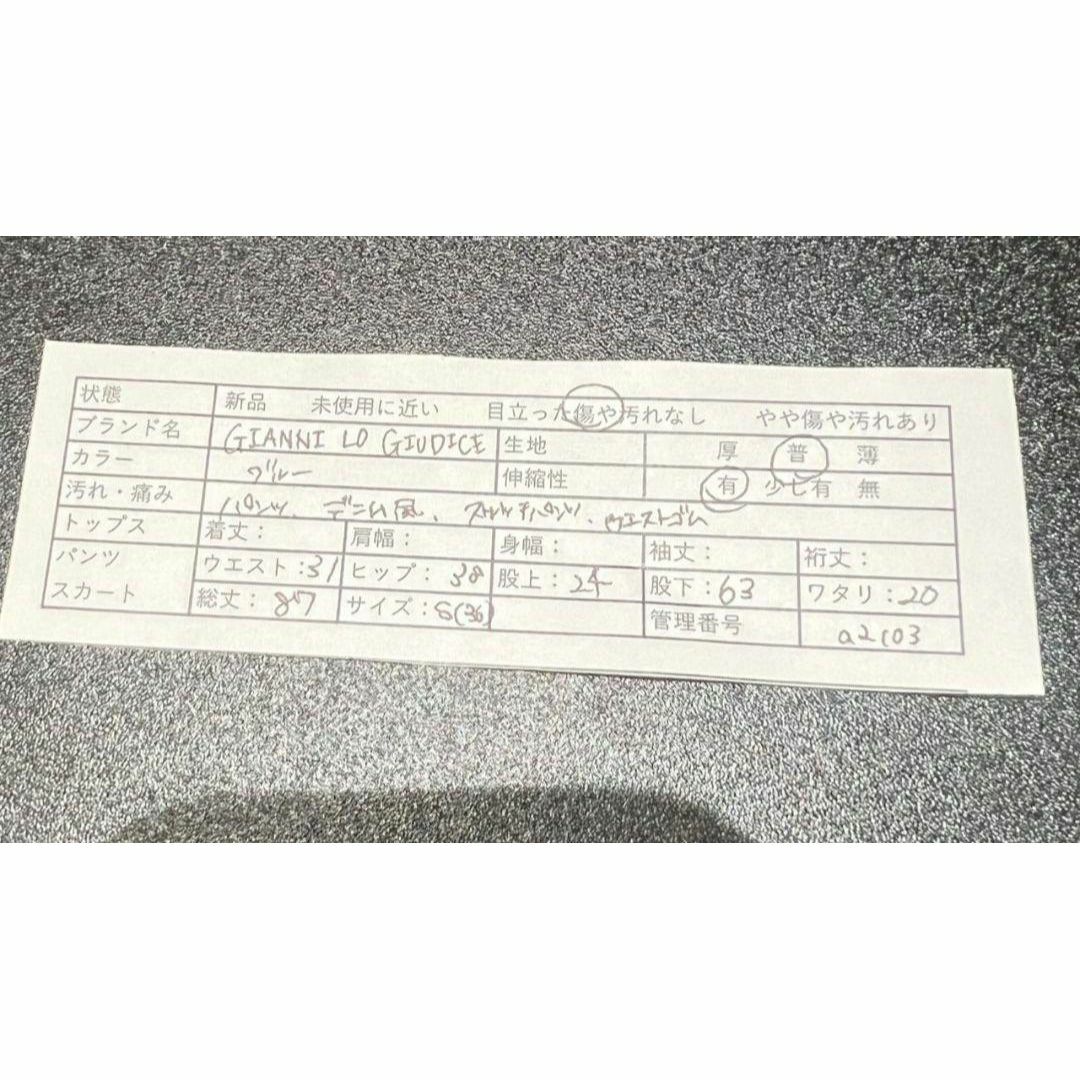 状態 新品 未使用に近い 目立った傷や汚れなし やや傷や汚れあり
ブランド名 GIANNI LO GIUDICE 生地 厚 普 薄
カラー ブルー 伸縮性 有 少し有 無
汚れ・痛み パンツ、デニム風、ストレッチパンツ、ウエストゴム
トップス 着丈： 肩幅： 身幅： 袖丈： 裄丈：
パンツ ウエスト：31 ヒップ：38 股上：24 股下：63 ワタリ：20
スカート 総丈：87 サイズ：S(36) 管理番号 a2103